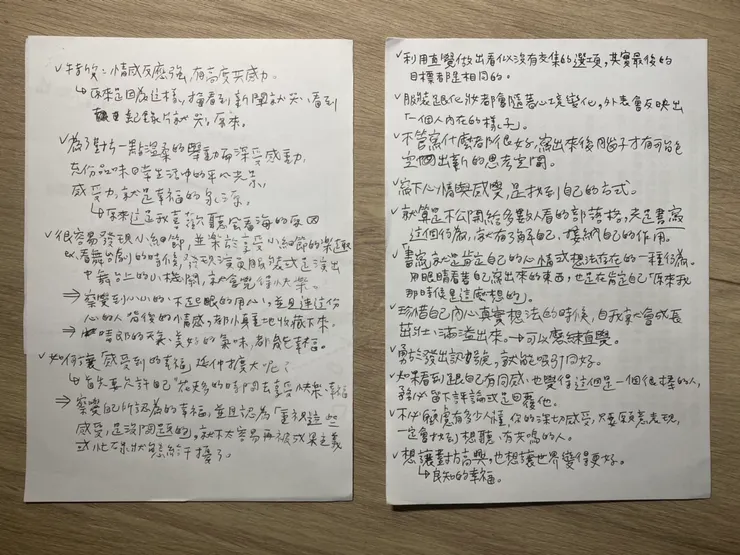 ✓特質：情感反應強,有高度共感力。
↳原來是因為這樣,才會看到新聞就哭、看到
紀錄片就哭,原來。
✓為了對方一點溫柔的舉動而深受感動,
充份品味日常生活中的年少光景,
感受力,就是幸福的來源。
↳原來這是我喜歡聽會看海的原因
✓很容易發現小細節,並樂於享受小細節的樂趣
ex.看舞台劇的時候,發現演員服裝或是演出
中舞台上的小機關,就會覺得快樂。
⇒察覺到小小的、不起眼的用心,並且連這份
心的人背後的情感,都小心翼翼地收藏下來。
⇒晴朗的天氣、美好的氣味,都能幸福。
✓如何讓「感受到的幸福」延伸擴大呢？
↳首先要允許自己「花更多的時間去享受快樂、幸福」
⇒察覺自己所認為的幸福,並且認為「重視這些
感受,是沒問題的」,就不太容易再被成果主義
或忙碌狀態給干擾了。
✓利用直覺做出看似沒有交集的選項,其實最後的
目標都是相同的。
✓服裝跟化妝都會隨著心境變化,外表會反映出
「一個人內在的樣子」。
✓不管寫什麼都很好,寫出來後腦子才有可能
空個出新的思考空間。
✓寫下心情與感覺,是找到自己的方式。
✓就算是不公開給多數人看的部落格,光是書寫
這個行為,就有了解自己、接納自己的作用。
✓「書寫」就是肯定自己的心情或想法存在的一種行為。
用眼睛看著自己寫出來的東西,也是在肯定自己「原來我
那時候是這麼想的」。
✓珍惜自己內心真實想法的時候,自我就會成長
茁壯、滿溢出來。→可以磨練直覺。
✓勇於發出訊號,就能吸引同好。
✓如果看到跟自己有同感、也覺得這個是一個很棒的人,
務必留下評論或是回覆他。
✓不必顧慮有多少人懂,你的深切感受,只要願意表現,
一定會找到想聽、有共鳴的人。
✓想讓對方高興,也想讓世界變得更好。
↳良知的幸福。